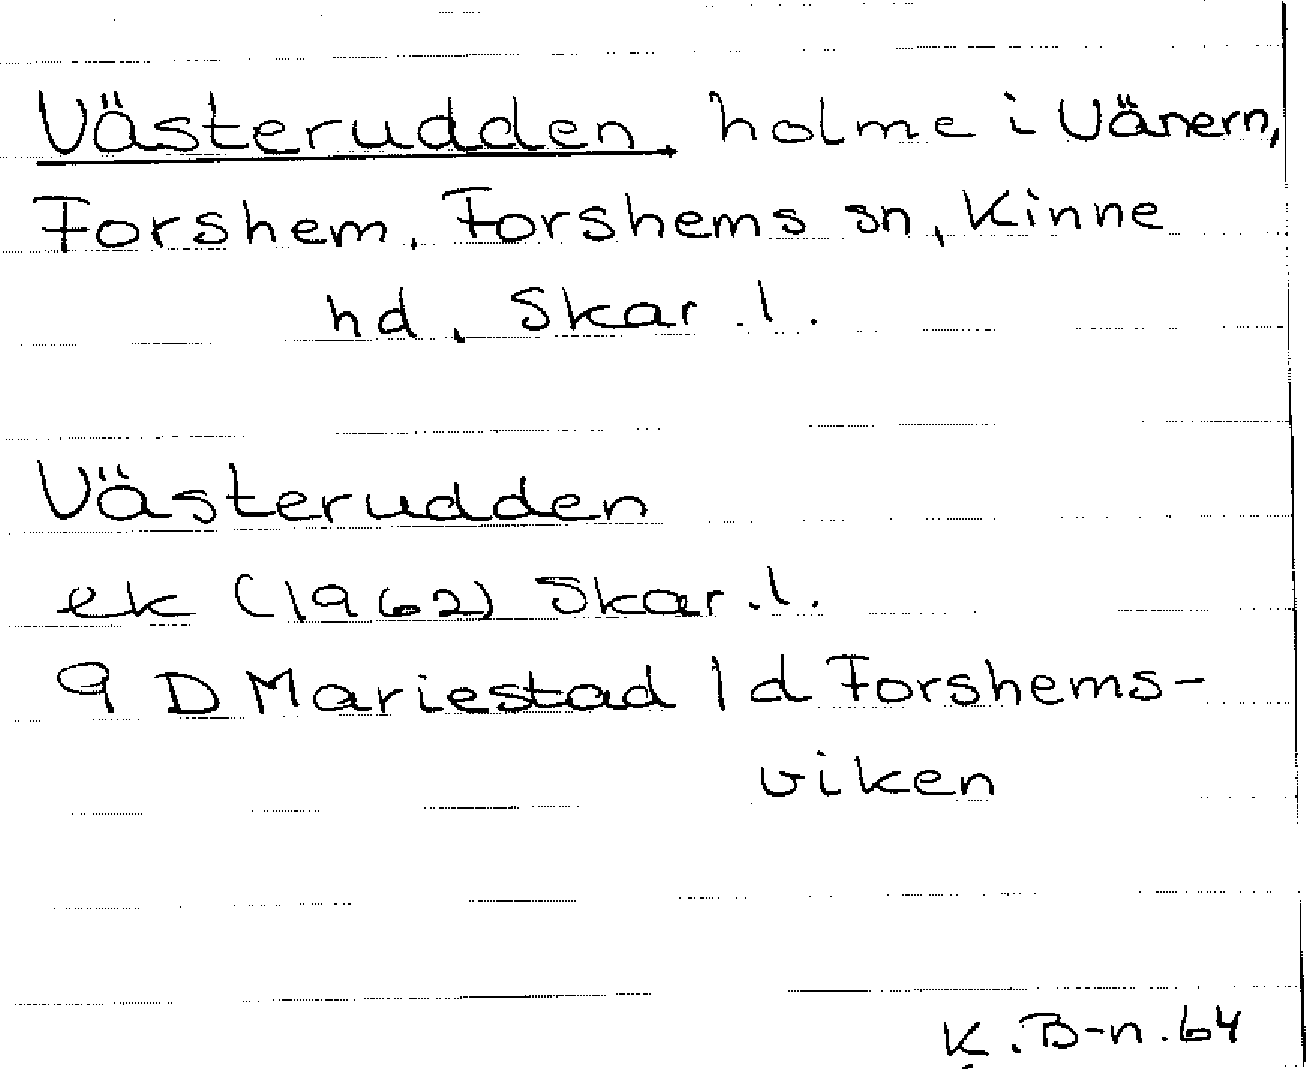 Västerudden, holme i Vänern,
Forshem, Forshems sn, Kinne
hd, Skar.l.
Västerudden
ek (1962) Skar.l.
9 D Mariestad 1 d Forshems-
viken
K.B-n.64